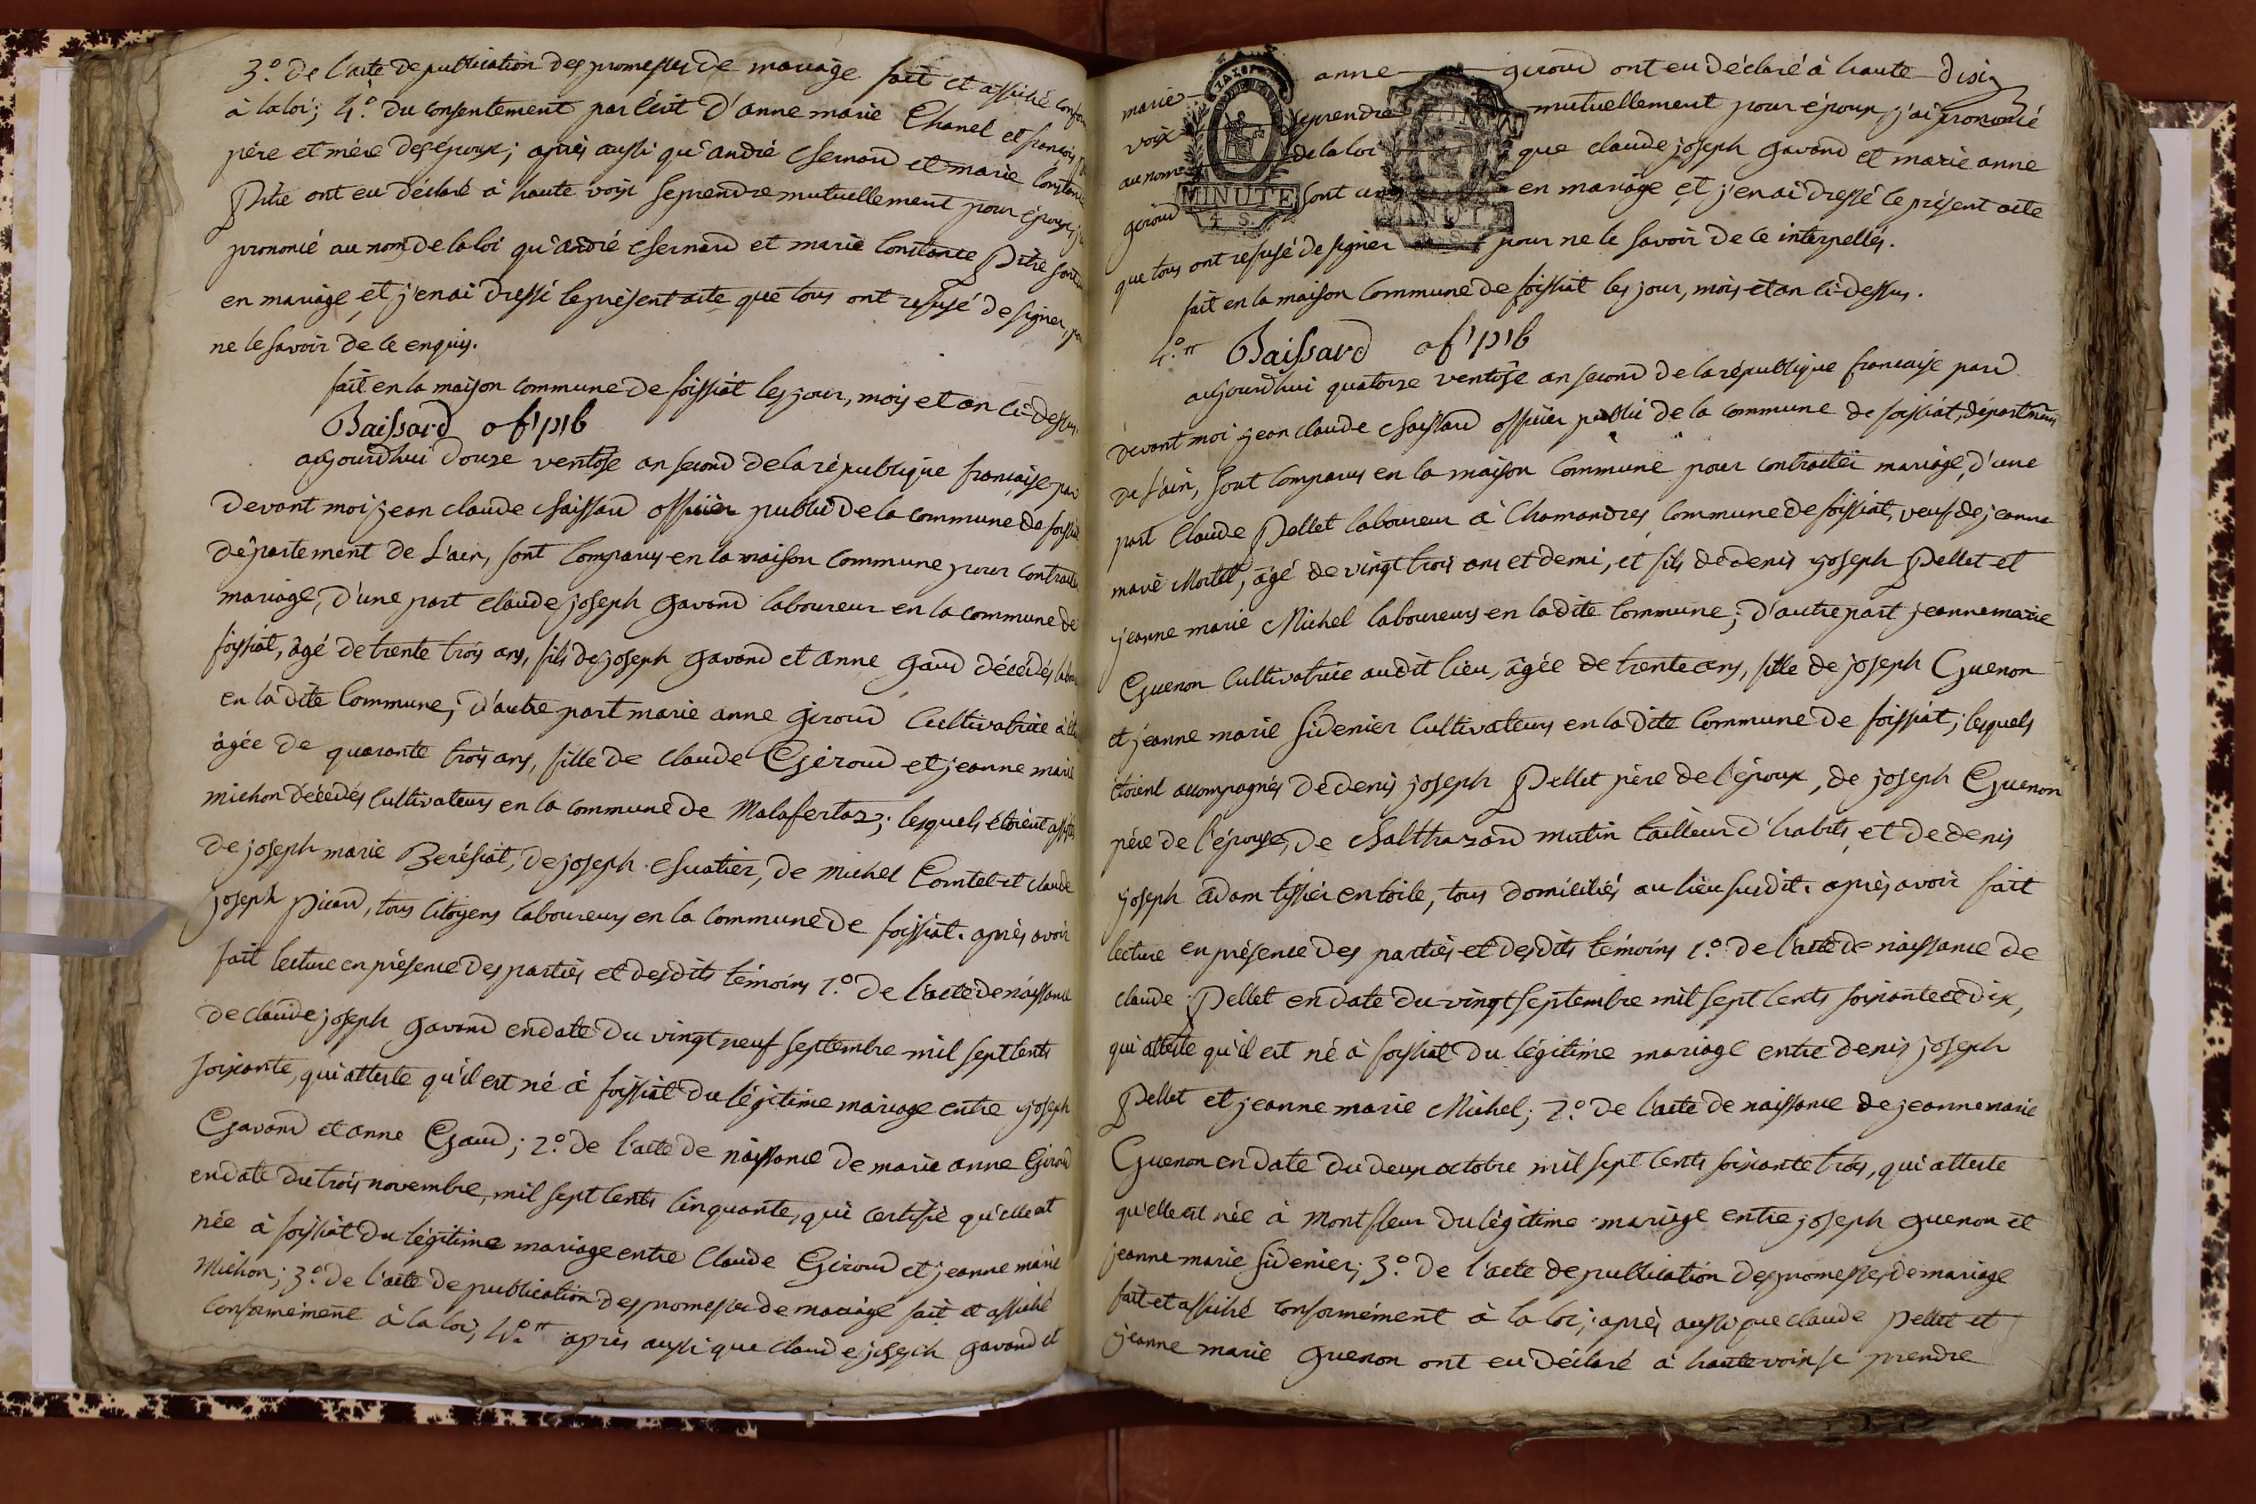 3.º de l'acte de publication des promesses de mariage fait et affiché confor
à la loi; 4.º du consentement par écrit d'anne marie Chanel et françois
père et mère des époux; après aussi qu'andré Bernard et marie Constance
Pitre ont eu déclaré à haute voix se prendre mutuellement pour époux, j'ai
prononcé au nom de la loi qu'andré Bernard et marie Constance Pitre sont
en mariage, et j'en ai dressé le présent acte que tous ont refusé de signer, pour
ne le savoir de ce enquis.
fait en la maison commune de foissiat les jour, mois et an ci-dessus.
Baissard of. pib
aujourdhui douze ventôse an second de la république française par
devant moi jean claude Baissard officier public de la commune de foissiat
département de L'ain, sont comparus en la maison commune pour contracter
mariage, d'une part claude joseph gavand laboureur en la commune de
foissiat, âgé de trente trois ans, fils de joseph gavand et anne gaud décédés labou
en la dite Commune; d'autre part marie anne giroud Cultivatrice
âgée de quarante trois ans, fille de claude Giroud et jeanne marie
michon décédés Cultivateurs en la commune de Malafertaz; lesquels étoient assistés
de joseph marie Beréziat, de joseph Buatier, de michel Comtet et claude
joseph picard, tous citoyens laboureurs en la commune de foissiat. après avoir
fait lecture en présence des parties et desdits témoins 1.º de l'acte de naissance
de claude joseph gavand en date du vingt neuf septembre mil sept cents
soixante, qui atteste qu'il est né à foissiat du légitime mariage entre joseph
Gavand et anne Gaud; 2.º de l'acte de naissance de marie anne Giroud
en date du trois novembre, mil sept cents cinquante, qui certifie qu'elle est
née à foissiat du légitime mariage entre Claude Giroud et jeanne marie
Michon; 3.º de l'acte de publication des promesses de mariage fait et affiché
conformément à la loi; 4.º après aussi que claude joseph gavand et
marie anne giroud ont eu déclaré à haute
voix se prendre mutuellement pour époux, j'ai prononcé
au nom de la loi que claude joseph gavand et marie anne
giroud sont unis en mariage et j'en ai dressé le présent acte
que tous ont refusé de signer pour ne le savoir de ce interpellés.
MINUTE
4 S.
MINUTE
fait en la maison Commune de foissiat les jour, mois et an ci-dessus.
4.º Baissard of. pib
aujourdhui quatorze ventôse an second de la république francaise pard
devant moi jean claude Baissard officier public de la commune de foissiat, département
de l'ain, sont comparus en la maison Commune pour contracter mariage, d'une
part Claude Pellet laboureur à Chamandrey Commune de foissiat, veuf de jeanne
marie Mortel, âgé de vingt trois ans et demi, et fils de denis joseph Pellet et
jeanne marie Michel laboureurs en la dite Commune; d'autre part jeanne marie
Guenon Cultivatrice audit lieu, âgée de trente ans, fille de joseph Guenon
et jeanne marie fidenier Cultivateurs en la dite Commune de foissiat; lesquels
étoient accompagnés de denis joseph Pellet père de l'époux, de joseph Guenon
père de l'épouse, de Balthazard mutin tailleur d'habits, et de denis
joseph adam tissier en toile, tous domiciliés au lieu susdit. après avoir fait
lecture en présence des parties et desdits témoins 1.º de l'acte de naissance de
claude Pellet en date du vingt septembre mil sept cents soixante et dix,
qui atteste qu'il est né à foissiat du légitime mariage entre denis joseph
Pellet et jeanne marie Michel; 2.º de l'acte de naissance de jeanne marie
Guenon en date du deux octobre mil sept cents soixante trois, qui atteste
qu'elle est née à Montfleur du légitime mariage entre joseph guenon et
jeanne marie fidenier; 3.º de l'acte de publication des promesses de mariage
fait et affiché conformément à la loi; après aussi que claude pellet et
jeanne marie guenon ont eu déclaré à haute voix se prendre